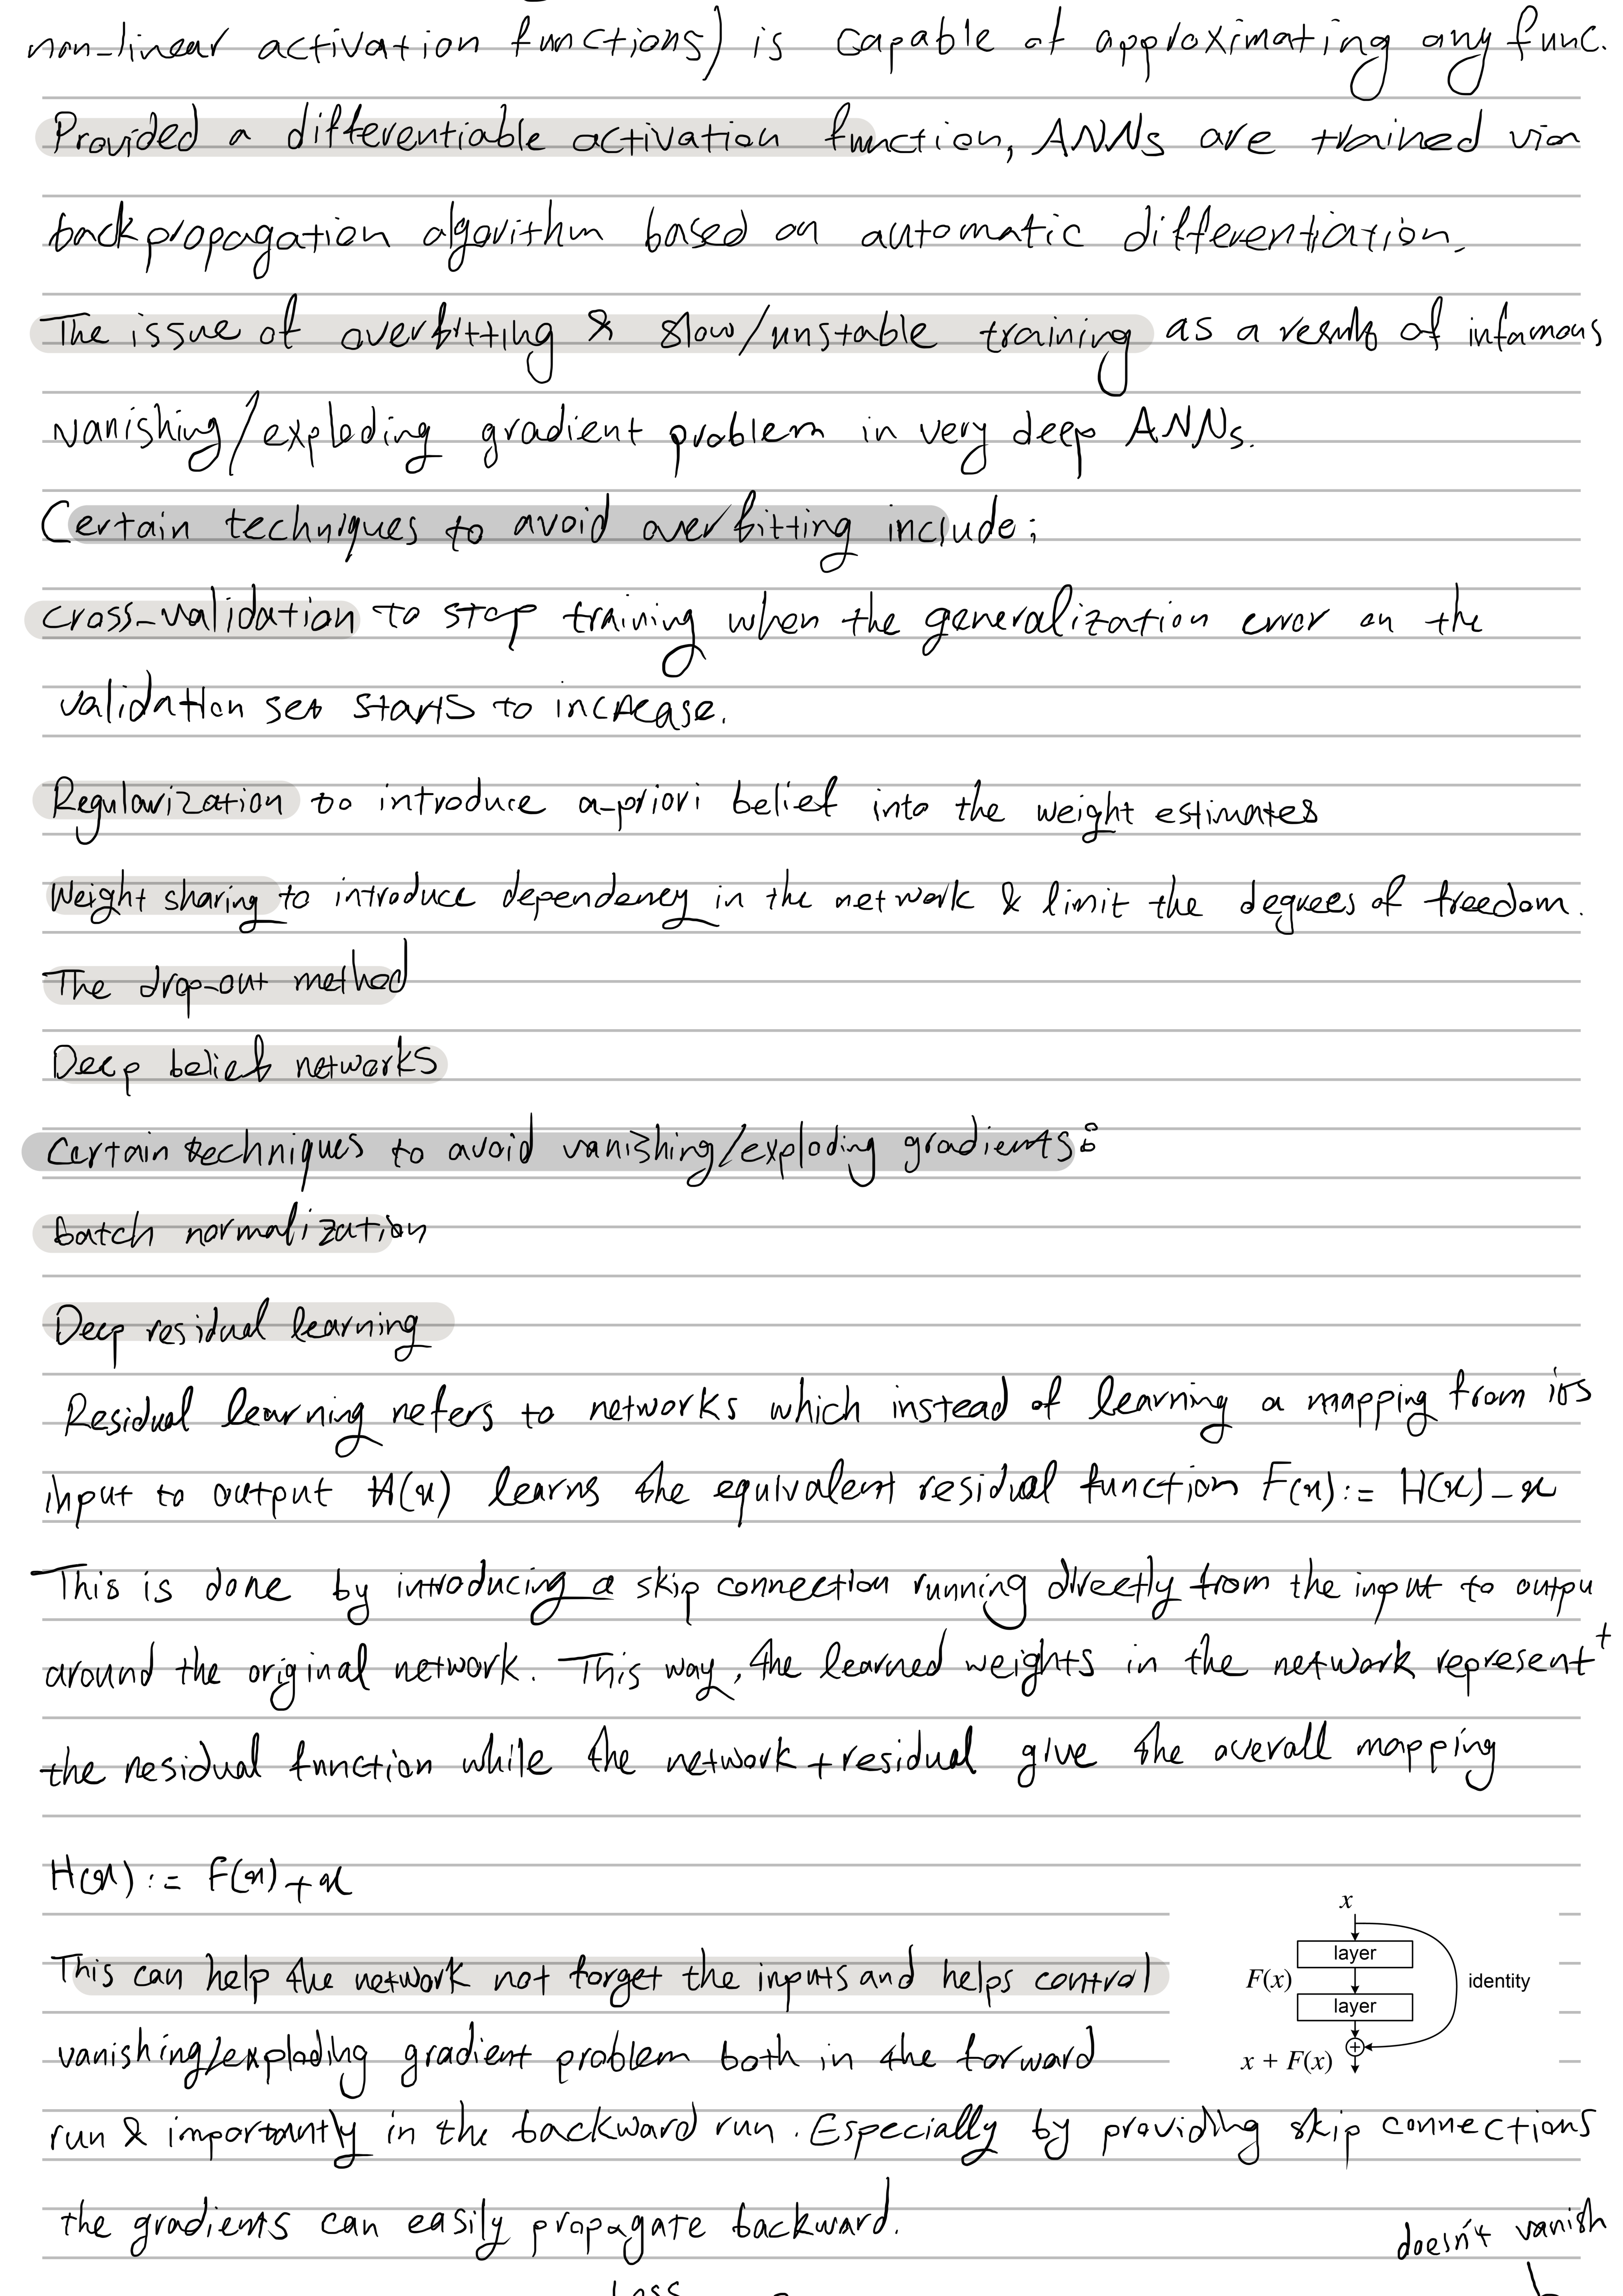 non-linear activation functions) is capable of approximating any func.
Provided a differentiable activation function, ANNs are trained via
backpropagation algorithm based on automatic differentiation.
The issue of overfitting & slow/unstable training as a result of infamous
vanishing/exploding gradient problem in very deep ANNs.
Certain techniques to avoid overfitting include:
cross-validation to stop training when the generalization error on the
validation set starts to increase.
Regularization to introduce a-priori belief into the weight estimates
Weight sharing to introduce dependency in the network & limit the degrees of freedom.
The drop-out method
Deep belief networks
Certain techniques to avoid vanishing/exploding gradients:
batch normalization
Deep residual learning
Residual learning refers to networks which instead of learning a mapping from its
input to output H(x) learns the equivalent residual function F(x):= H(x)-x
This is done by introducing a skip connection running directly from the input to output
around the original network. This way, the learned weights in the network represent
the residual function while the network+residual give the overall mapping
H(x) := F(x)+x
x
layer
F(x)
identity
layer
x + F(x)
This can help the network not forget the inputs and helps control
vanishing/exploding gradient problem both in the forward
run & importantly in the backward run. Especially by providing skip connections
the gradients can easily propagate backward.
doesn't vanish
Loss